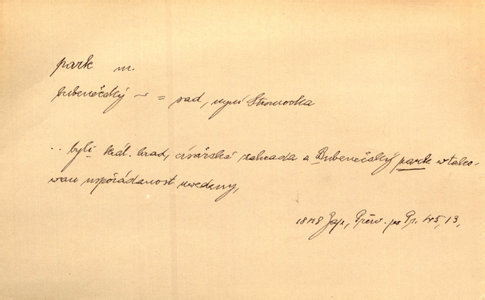 park m.
bubenečský ~ = sad, nyní Stromovka
.. byli král. hrad, císařská zahrada a Bubenečský park w tako-
wau uspořádanost uwedeny,
1848 Zap, Prův. po Pr. 45, 13,